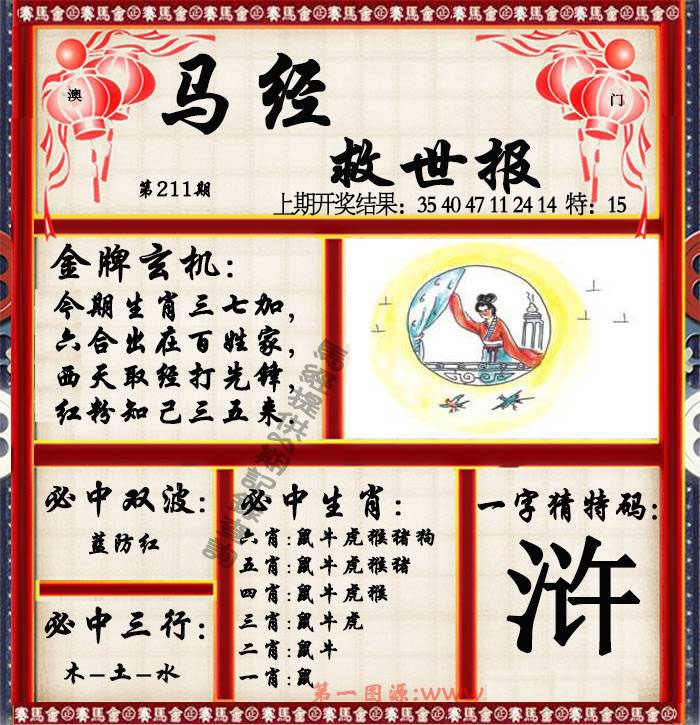 賽馬會 賽馬會 賽馬會 賽馬會 賽馬會 賽馬會 賽馬會 賽馬會
澳
门
马经
救世报
第211期
上期开奖结果：35 40 47 11 24 14 特：15
金牌玄机：
今期生肖三七加，
六合出在百姓家，
西天取经打先锋，
红粉知己三五来.
必中双波：
蓝防红
必中三行：
木–土–水
必中生肖：
六肖:鼠牛虎猴猪狗
五肖:鼠牛虎猴猪
四肖:鼠牛虎猴
三肖:鼠牛虎
二肖:鼠牛
一肖:鼠
一字猜特码：
浒
第一图源:www